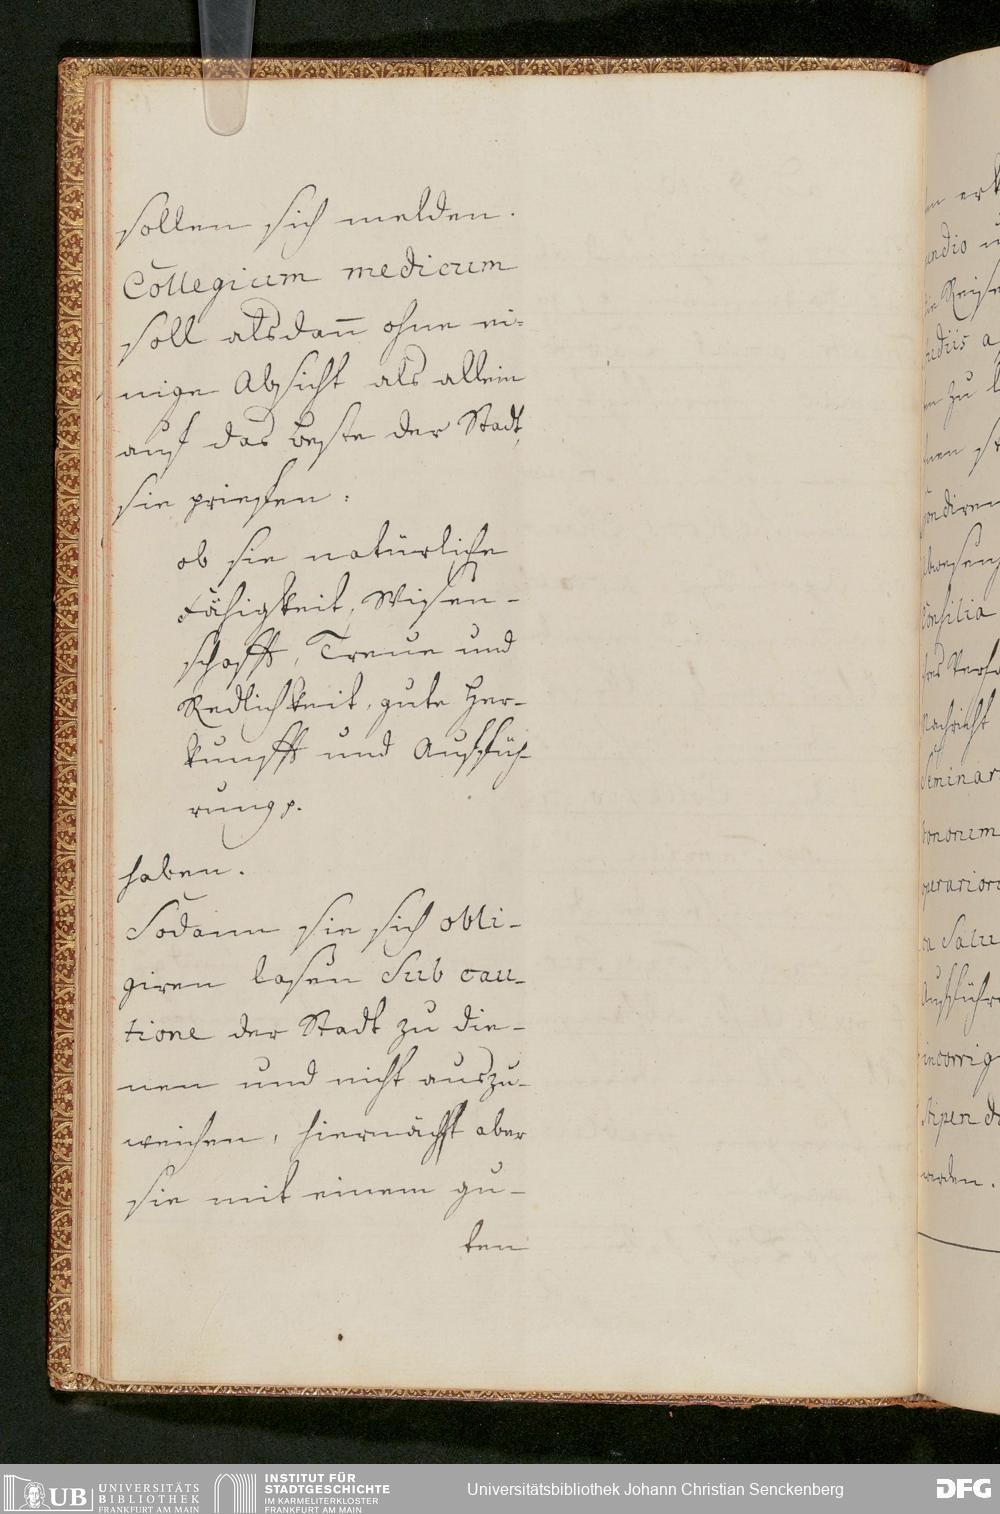 sollen sich melden.
Collegium medicum
soll alsdann ohne ei-
nige Absicht als allein
auf das beste der Stadt,
sie priefen:
ob sie natürliche
Fähigkeit, Wisen-
schafft, Treue und
Redlichkeit, gute Her-
kunfft und Aufführ-
rung p.
haben.
Sodann sie sich obli-
giren lasen Sub cau-
tione der Stadt zu die-
nen und nicht auszu-
weichen, hiernächst aber
sie mit einem gu-
ten
UB UNIVERSITÄTS
BIBLIOTHEK
FRANKFURT AM MAIN
INSTITUT FÜR
STADTGESCHICHTE
IM KARMELITERKLOSTER
FRANKFURT AM MAIN
Universitätsbibliothek Johann Christian Senckenberg
DFG